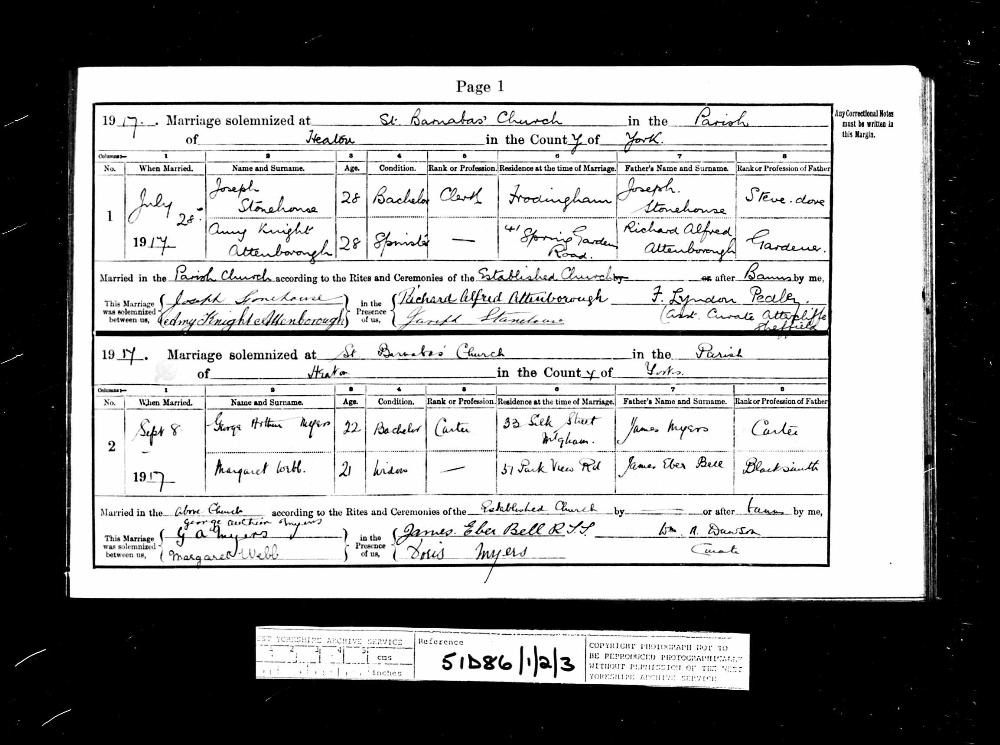 Page 1
1917. Marriage solemnized at St. Barnabas' Church in the Parish
of Heaton in the County of York.
Any Correctional Notes
must be written in
this Margin.
Columns:— 1 2 3 4 5 6 7 8
No. When Married. Name and Surname. Age. Condition. Rank or Profession. Residence at the time of Marriage. Father's Name and Surname. Rank or Profession of Father
1 July 28. 1917 Joseph Stonehouse 28 Bachelor Clerk Frodingham Joseph. Stonehouse
Amy Knight Attenborough 28 Spinster — 41 Spring Garden Road. Richard Alfred Attenborough Gardener.
Married in the Parish Church according to the Rites and Ceremonies of the Established Church by or after Banns by me,
This Marriage was solemnized between us, Joseph Stonehouse in the Presence of us, Richard Alfred Attenborough F. Lyndon Pedley.
Amy Knight Attenborough Joseph Stonehouse Asst. Curate Attercliffe Sheffield
1917. Marriage solemnized at St Barnabas' Church in the Parish
of Heaton in the County of Yorks.
Columns:— 1 2 3 4 5 6 7 8
No. When Married. Name and Surname. Age. Condition. Rank or Profession. Residence at the time of Marriage. Father's Name and Surname. Rank or Profession of Father
2 Sept 8 1917 George Arthur Myers 22 Bachelor Carter 33 Silk Street James Myers Carter
Margaret Webb. 21 Widow — 37 Park View Rd James Eber Bell Blacksmith
Married in the above Church according to the Rites and Ceremonies of the Established Church by or after banns by me,
George Arthur Myers
This Marriage was solemnized between us, G A Myers in the Presence of us, James Eber Bell Wm. Dawson
Margaret Webb Doris Myers Curate
WEST YORKSHIRE ARCHIVE SERVICE
1 2 3 4 5 cms
inches
Reference
51D86/1/2/3
COPYRIGHT PHOTOGRAPH NOT TO
BE REPRODUCED PHOTOGRAPHICALLY
WITHOUT PERMISSION OF THE WEST
YORKSHIRE ARCHIVE SERVICE